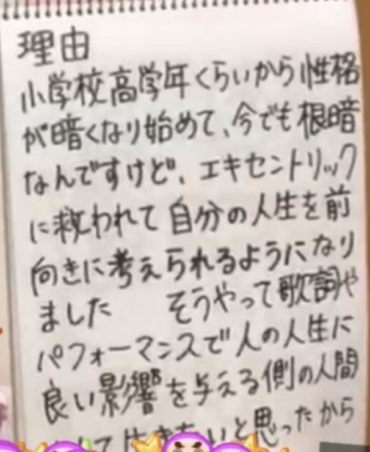 理由
小学校高学年くらいから性格
が暗くなり始めて、今でも根暗
なんですけど、エキセントリック
に救われて自分の人生を前
向きに考えられるようになり
ました　そうやって歌詞や
パフォーマンスで人の人生に
良い影響を与える側の人間
して生きたいと思ったから